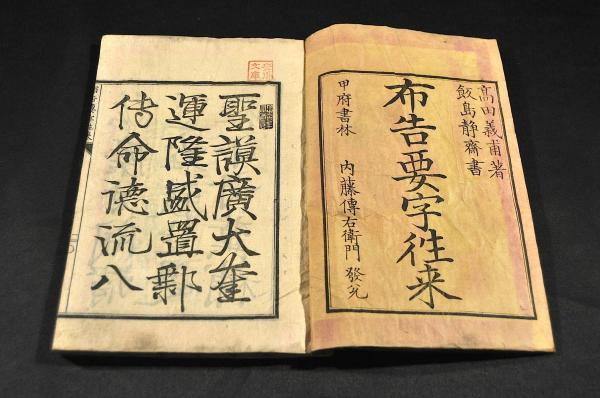 高田義甫著
飯島静齋書
布告要字往来
甲府書林 内藤傳右衛門 發兌
文庫
聖謨廣大奎
運隆盛置郵
传命德流八